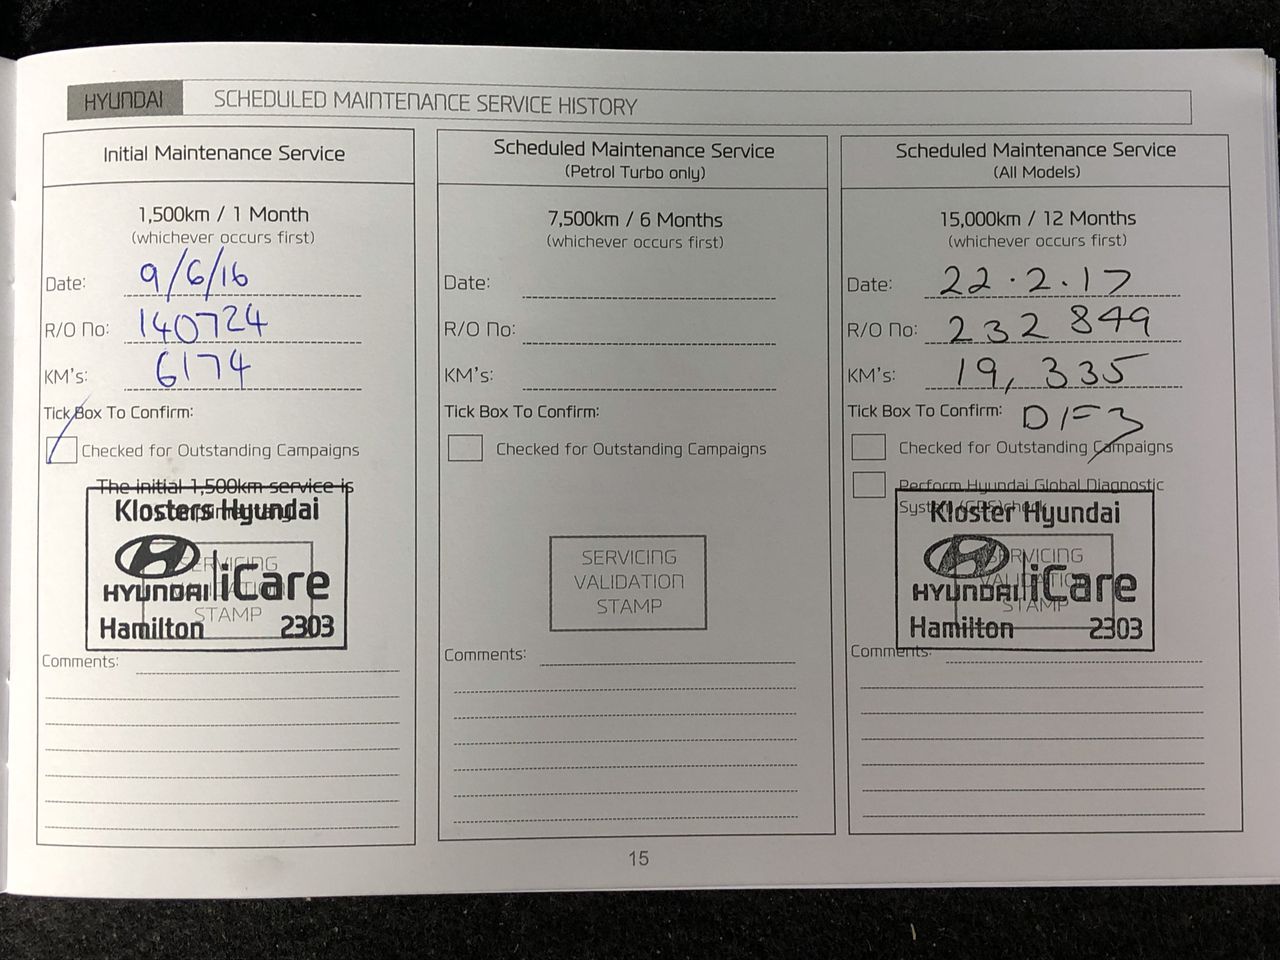 HYUNDAI SCHEDULED MAINTENANCE SERVICE HISTORY
Initial Maintenance Service
1,500km / 1 Month
(whichever occurs first)
Date: 9/6/16
R/O No: 140724
KM's: 6174
Tick Box To Confirm:
Checked for Outstanding Campaigns
The initial 1,500km service is
Klosters Hyundai
SERVICING
HYUNDAI iCare
STAMP
Hamilton 2303
Comments:
Scheduled Maintenance Service
(Petrol Turbo only)
7,500km / 6 Months
(whichever occurs first)
Date:
R/O No:
KM's:
Tick Box To Confirm:
Checked for Outstanding Campaigns
SERVICING
VALIDATION
STAMP
Comments:
Scheduled Maintenance Service
(All Models)
15,000km / 12 Months
(whichever occurs first)
Date: 22.2.17
R/O No: 232 849
KM's: 19,335
Tick Box To Confirm:
Checked for Outstanding Campaigns
Perform Hyundai Global Diagnostic
System (GDS) check
Kloster Hyundai
SERVICING
VALIDATION
HYUNDAI iCare
STAMP
Hamilton 2303
Comments:
15